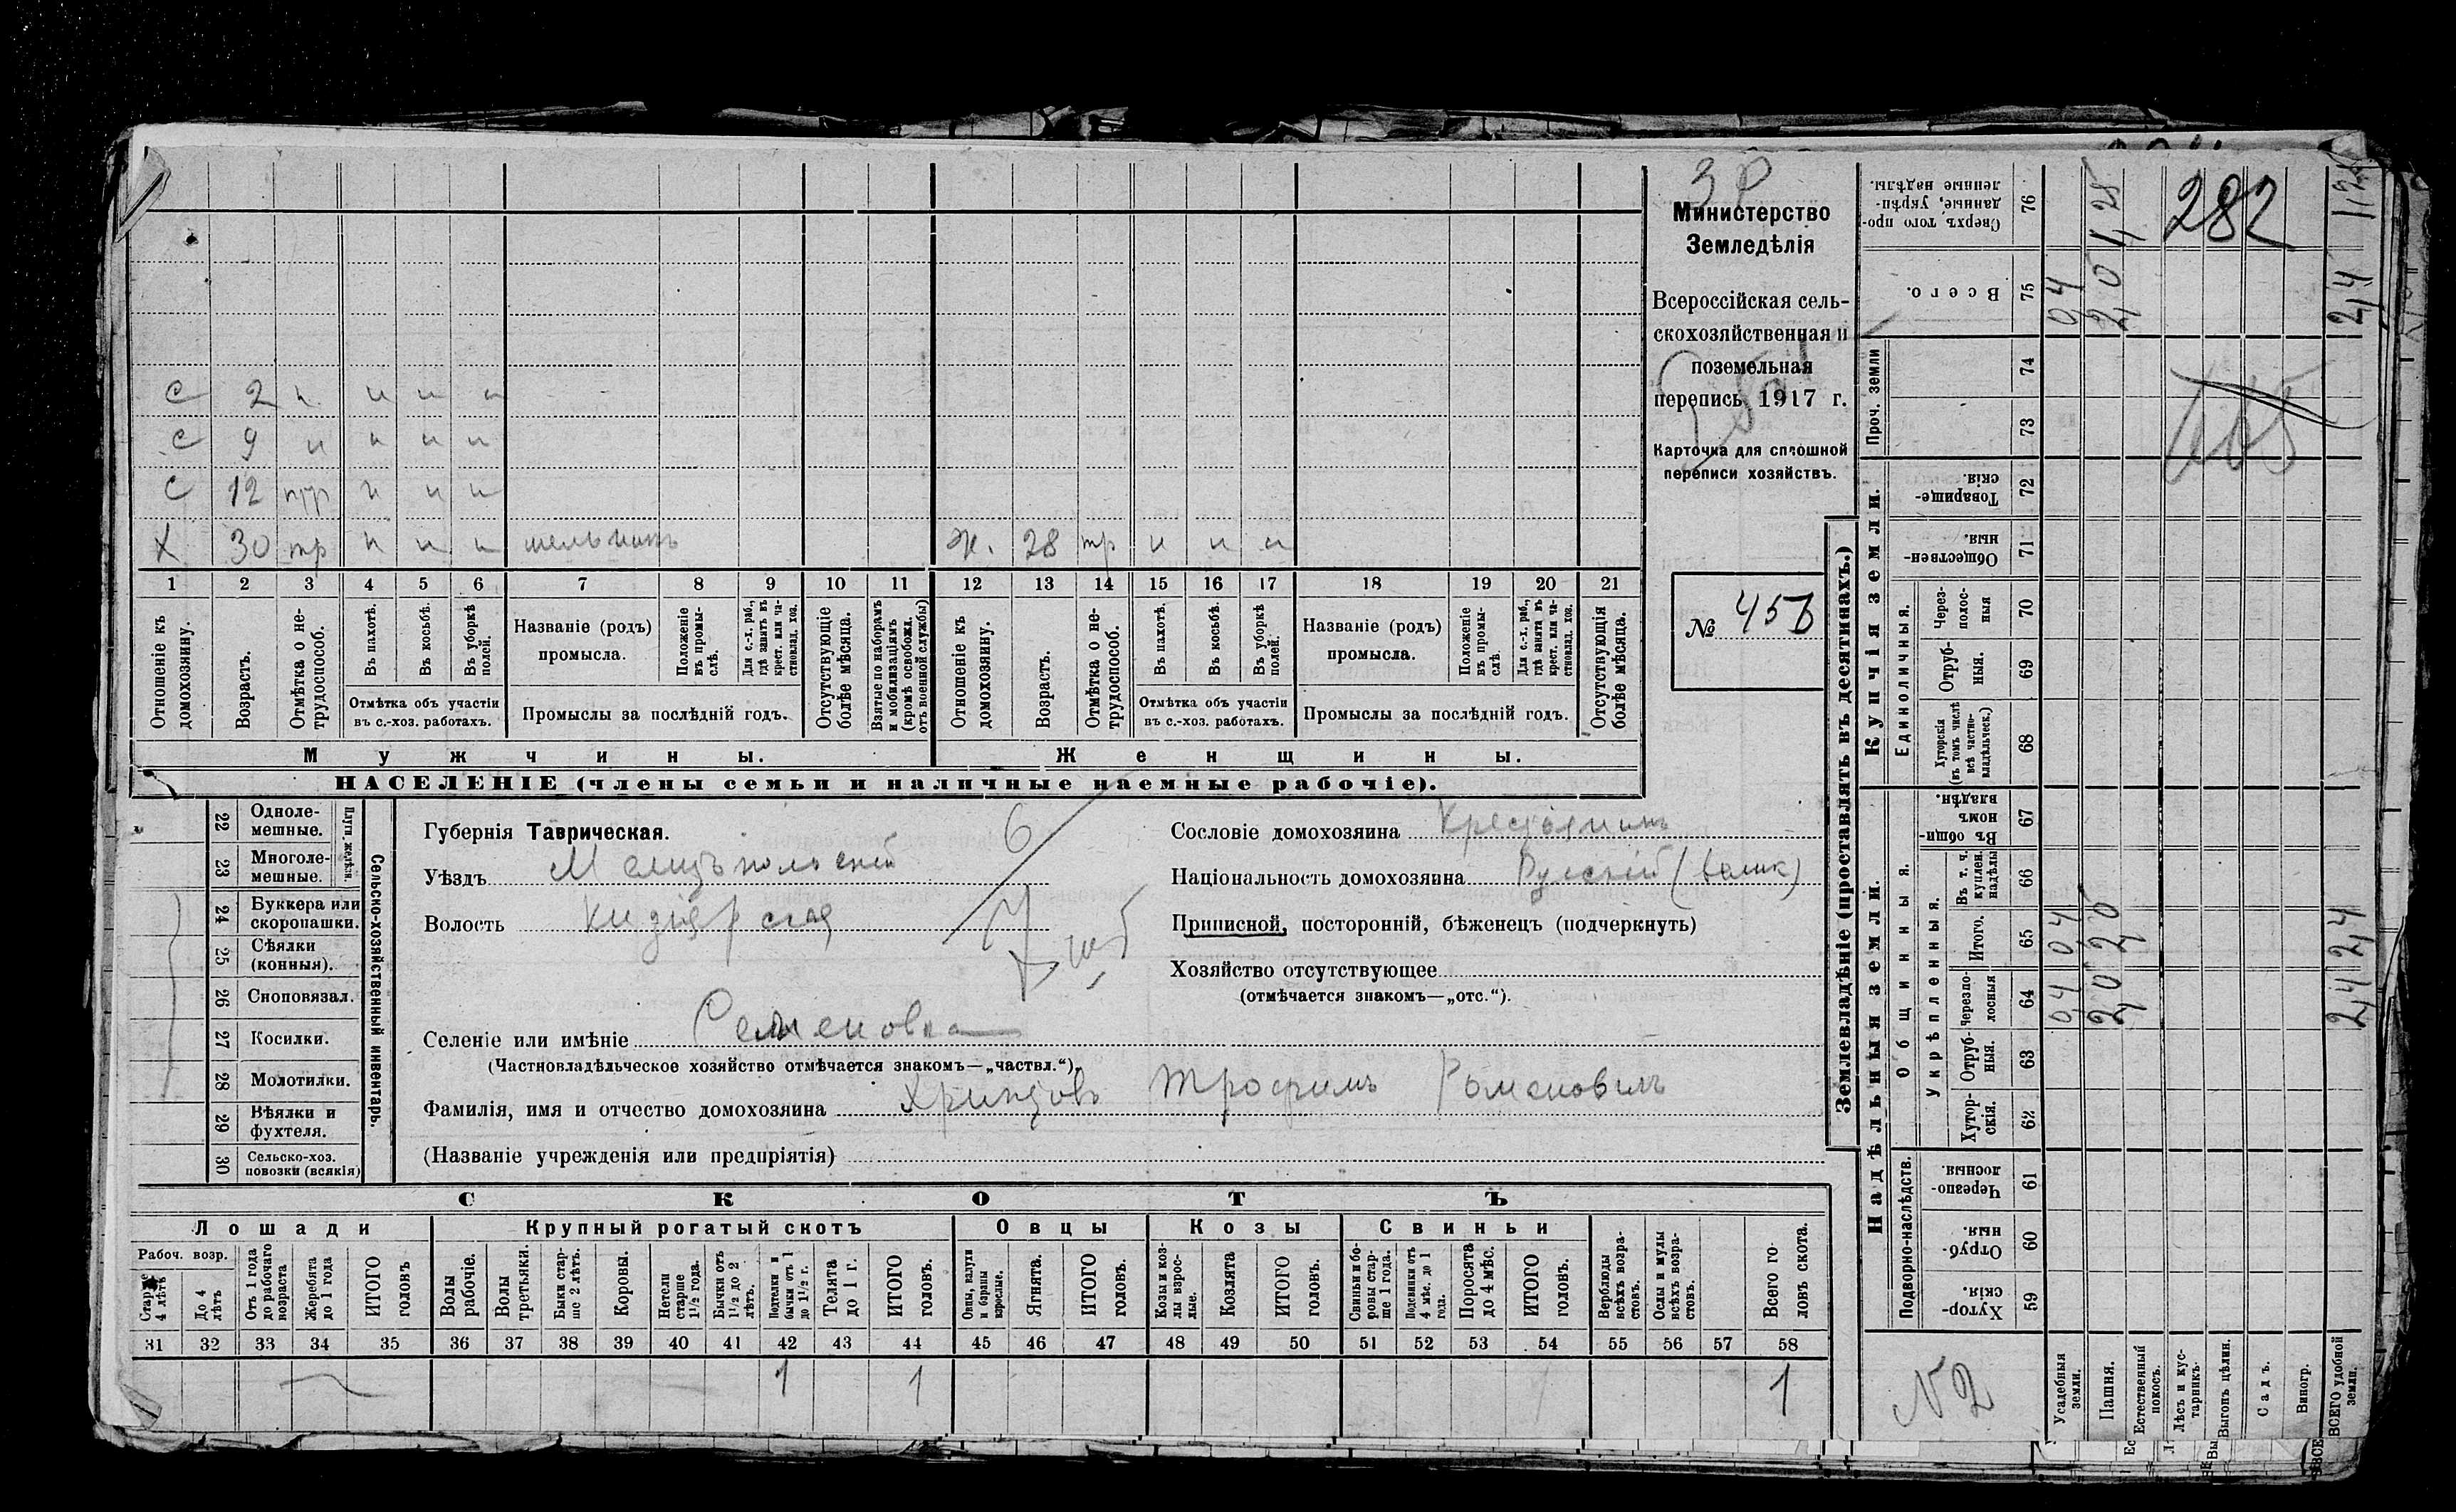 ЗР
Министерство
Земледѣлія
Всероссійская сель-
скохозяйственная и
поземельная
перепись 1917 г.
Карточка для сплошной
переписи хозяйствъ.
№ 456
С 2 н н н н
С 9 н н н н
С 12 пр н н н
Х 30 тр н н н мельникъ Ж. 28 тр н н н
1 2 3 4 5 6 7 8 9 10 11 12 13 14 15 16 17 18 19 20 21
Отношеніе къ домохозяину.
Возрастъ.
Отмѣтка о не-трудоспособ.
Въ пахотѣ.
Въ косьбѣ.
Въ уборкѣ полей.
Отмѣтка объ участіи
въ с.-хоз. работахъ.
Названіе (родъ)
промысла.
Положеніе въ промы-слѣ.
Для с.-х. раб., гдѣ занятъ въ крест. или ча-стновлад. хоз.
Промыслы за послѣдній годъ.
Отсутствующіе болѣе мѣсяца.
Взятые по наборамъ и мобилизаціямъ (кромѣ освобожд. отъ военной службы)
Отношеніе къ домохозяину.
Возрастъ.
Отмѣтка о не-трудоспособ.
Въ пахотѣ.
Въ косьбѣ.
Въ уборкѣ полей.
Отмѣтка объ участіи
въ с.-хоз. работахъ.
Названіе (родъ)
промысла.
Положеніе въ промы-слѣ.
Для с.-х. раб., гдѣ занята въ крест. или ча-стновлад. хоз.
Промыслы за послѣдній годъ.
Отсутствующія болѣе мѣсяца.
Мужчины. Женщины.
НАСЕЛЕНІЕ (члены семьи и наличные наемные рабочіе).
22 Однолe-мешные.
23 Многоле-мешные.
Плуги желѣзн.
24 Буккера или скоропашки.
25 Сѣялки (конныя).
26 Сноповязал.
27 Косилки.
28 Молотилки.
29 Вѣялки и фухтеля.
30 Сельско-хоз. повозки (всякія)
Сельско-хозяйственный инвентарь.
Губернія Таврическая.
Уѣздъ Мелитопольскій
Волость Кизіярская
6
7
Сословіе домохозяина Крестьянинъ
Національность домохозяина Русскій (велик)
Приписной, посторонній, бѣженецъ (подчеркнуть)
Хозяйство отсутствующее
(отмѣчается знакомъ—„отс.“).
Селеніе или имѣніе Семеновка
(Частновладѣльческое хозяйство отмѣчается знакомъ—„частвл.“).
Фамилія, имя и отчество домохозяина Трофимъ Романовичъ
(Названіе учрежденія или предпріятія)
СКОТЪ
Лошади Крупный рогатый скотъ Овцы Козы Свиньи
Рабоч. возр.
Старше 4 лѣтъ
До 4 лѣтъ
Отъ 1 года до рабочаго возраста
Жеребята до 1 года
ИТОГО головъ
Волы рабочіе.
Волы третьяки.
Быки стар-ше 2 лѣтъ.
Коровы.
Нетели старше 1½ года.
Бычки отъ 1½ до 2 лѣтъ.
Подтелки и бычки отъ 1 до 1½ г.
Телята до 1 г.
ИТОГО головъ.
Овцы, валухи и бараны взрослые.
Ягнята.
ИТОГО головъ.
Козы и коз-лы взрос-лые.
Козлята
ИТОГО головъ.
Свиньи и бо-ровы стар-ше 1 года.
Подсвинки отъ 4 мѣс. до 1 года.
Поросята до 4 мѣс.
ИТОГО головъ.
Верблюды всѣхъ возра-стовъ.
Ослы и мулы всѣхъ возра-стовъ.
Всего го-ловъ скота.
31 32 33 34 35 36 37 38 39 40 41 42 43 44 45 46 47 48 49 50 51 52 53 54 55 56 57 58
1 1 1
Землевладѣніе (проставлять въ десятинахъ.)
Надѣльныя земли. Купчія земли. Проч. земли
Подворно-наслѣдств. Общинныя. Укрѣпленныя. Единоличныя.
Хутор-скія. 59
Отруб-ныя. 60
Черезпо-лосныя. 61
Хутор-скія. 62
Отруб-ныя. 63
Черезпо-лосныя 64
Итого. 65
Въ т. ч. куплен. надѣлы 66
Въ общин-номъ владѣн. 67
Хуторскія (въ томъ числѣ всѣ частно-владѣльческ.) 68
Отруб-ныя. 69
Через-полос-ныя 70
Обществен-ныя. 71
Товарище-скія. 72
73
74
Всего. 75
Сверхъ того про-данные, укрѣп-ленные надѣлы. 76
№2
Усадебныя земли. 04 04 04
Пашня. 20 20 20 4 28
Естественный покосъ.
Лѣсъ и кус-тарникъ.
Выгонъ цѣлин.
Садъ.
Виногр.
ВСЕГО удобной земли. 24 24 24
282